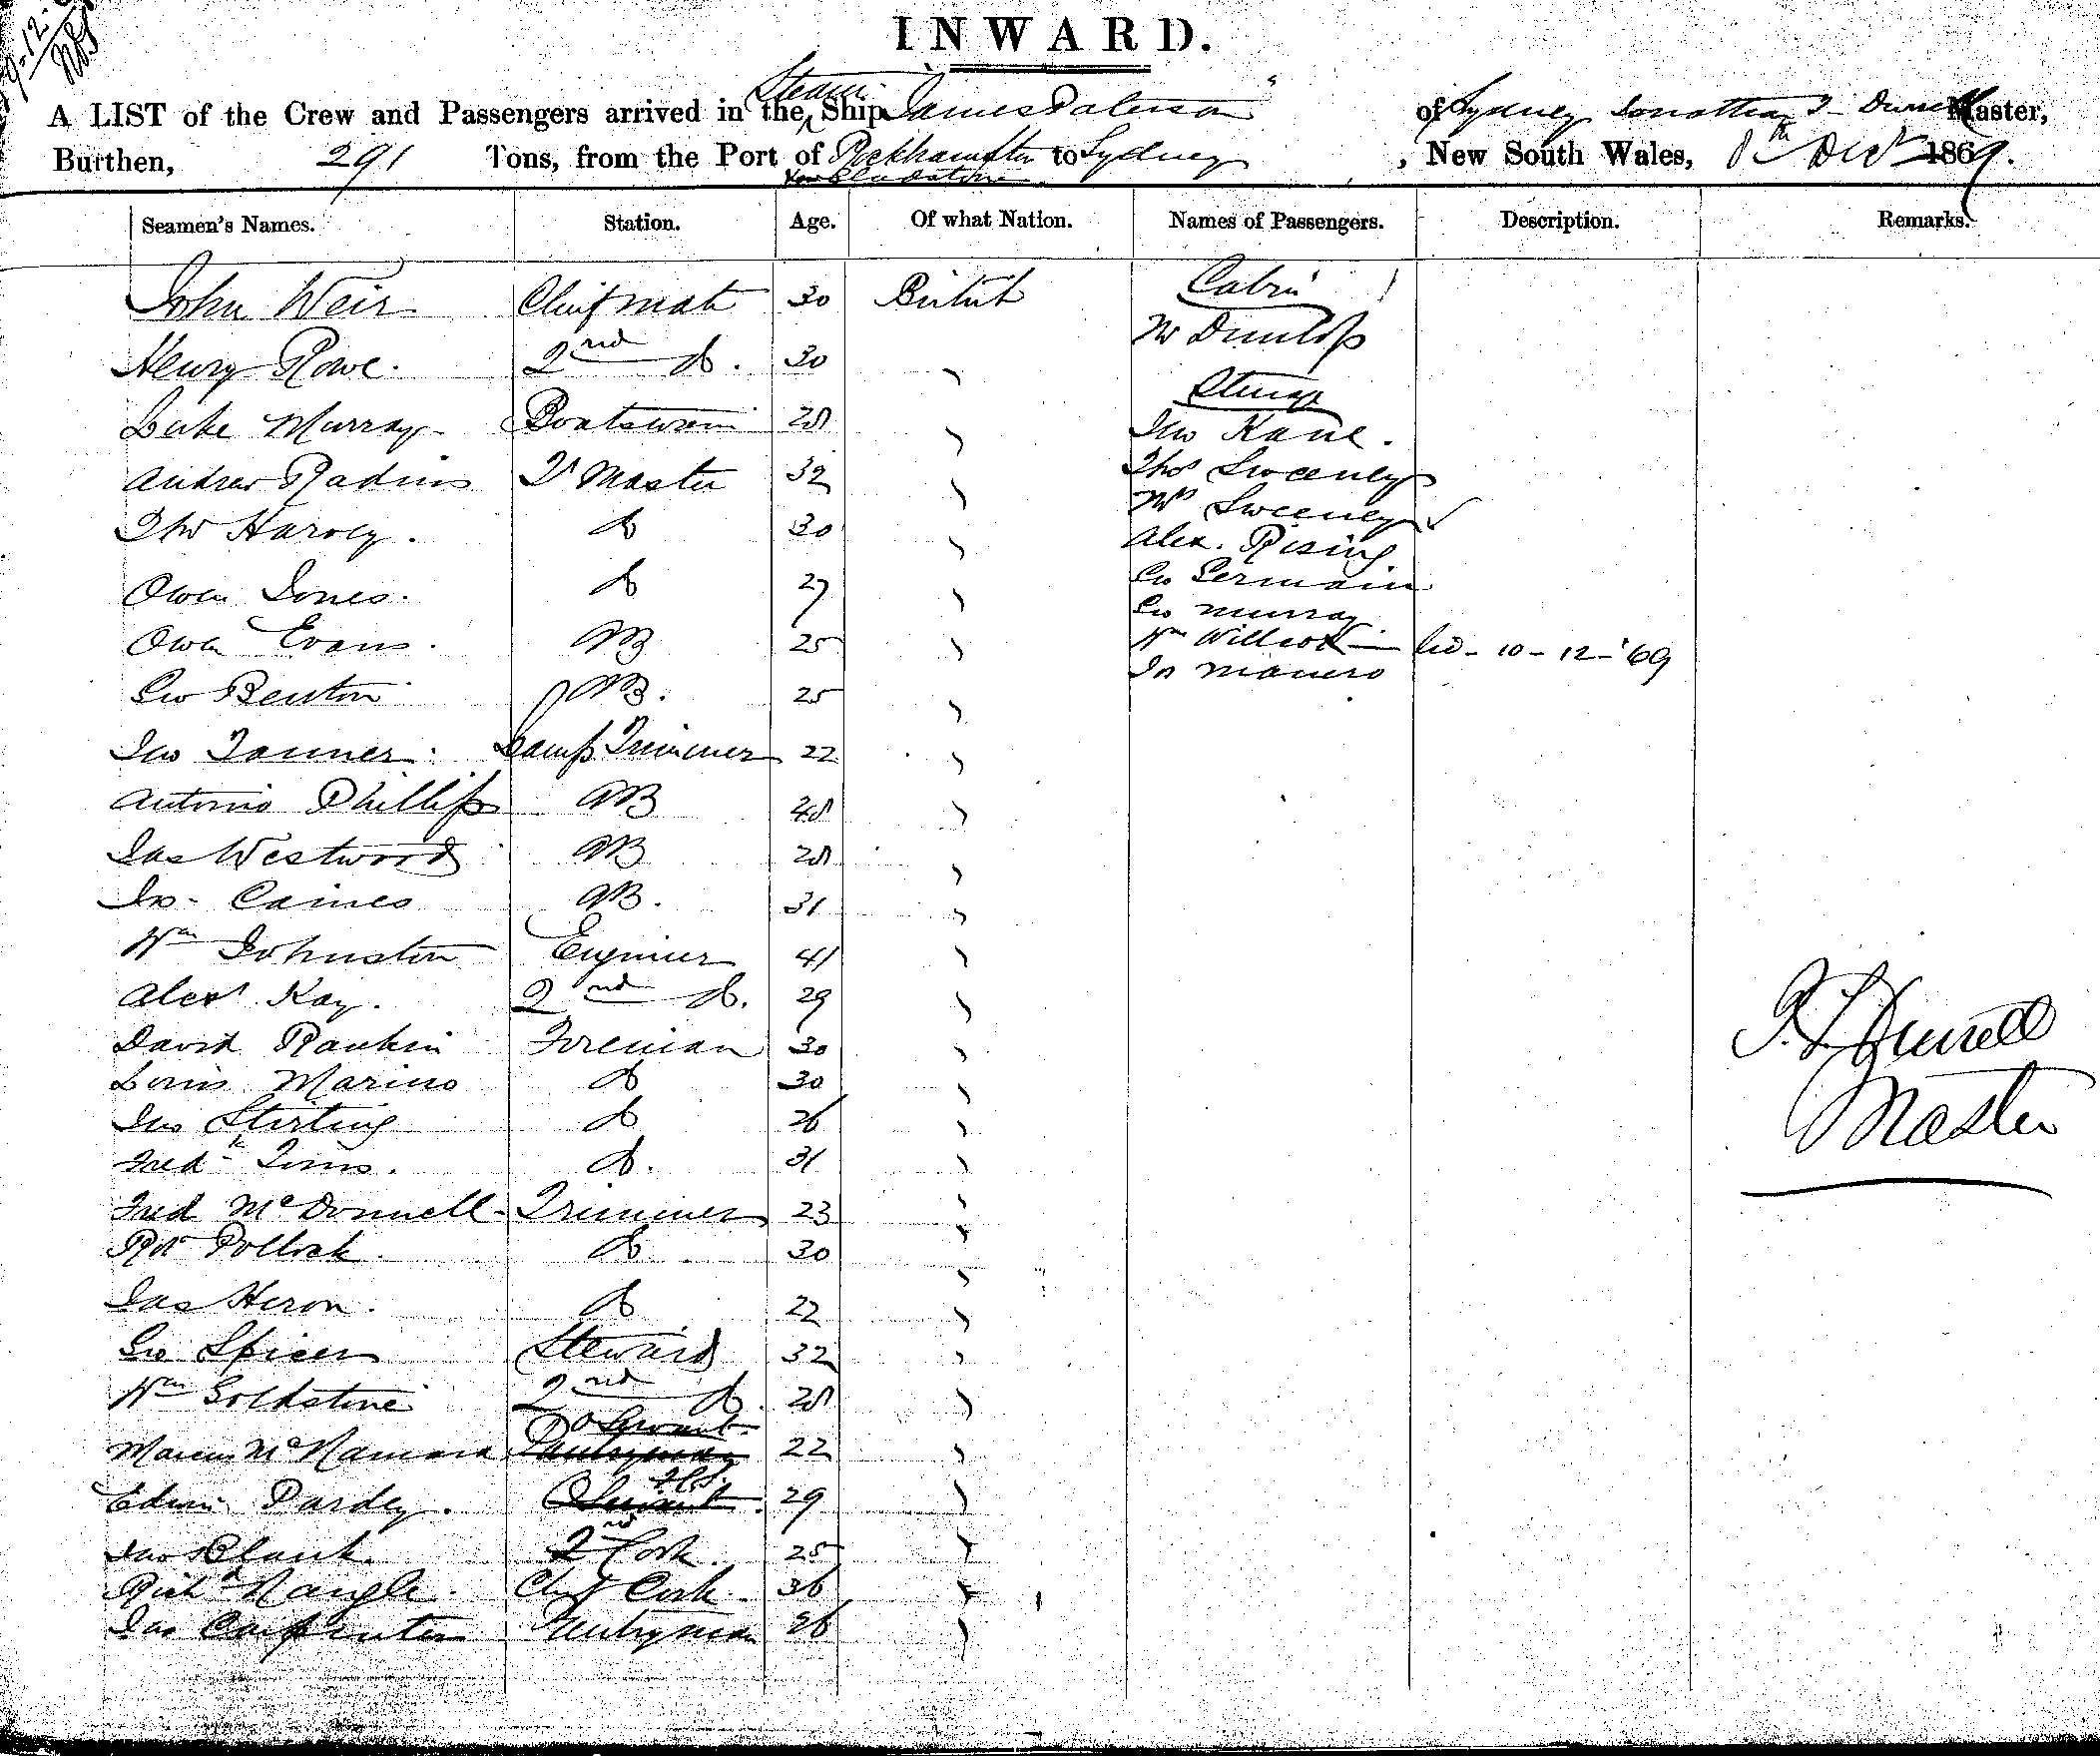 9-12-
INWARD.
A LIST of the Crew and Passengers arrived in the Steam Ship "James Paterson" of Sydney Jonathan Durrell Master,
Burthen, 291 Tons, from the Port of Rockhampton to Sydney, New South Wales, 8th Decr 1869.
via Gladstone
Seamen's Names. Station. Age. Of what Nation. Names of Passengers. Description. Remarks.
John Weir Chief mate 30 British Cabin
Mr Dunlop
Henry Rowe. 2nd Do. 30 "
Steerage
Luke Murray Boatswain 28 " Jno Kane.
Andrew Qr Master 32 " Thos Sweeney
Mrs Sweeney
Tho Harvey. Do 30 " Alex. Rising
Owen Jones. Do 27 " Geo Germain
Geo Murray
Owen Evans. AB 25 " Wm Willcox Geo - 10-12-'69
Js Manero
Geo Benton AB. 25 "
Jno Tanner. Lamp Trimmer 22 "
Antonio Phillips AB 48 "
Jas Westwood AB 28 "
Js. Caines AB. 31 "
Wm Johnston Engineer 41 "
Alexr Kay. 2nd Do. 29 "
David Rankin Foreman 30 "
Louis Marino Do 30 "
Jno Stirling Do 26 "
Fredk Tims. Do. 31 "
Fred McDonnell Trimmer 23 "
Robt Pollock Do 30 "
Jas Heron. Do 22 "
Geo Spicer Steward 32 "
Wm Goldstone 2nd Do. 28 "
Marcus McNamara Do Servant Pantryman 22 "
Edwin Pardey. Servant 29 "
Jno Blank 2nd Cook. 25 "
Richd Nangle. Chief Cook. 36 "
Jas Carpenter Pantryman 26 "
J. L. Durrell
Master